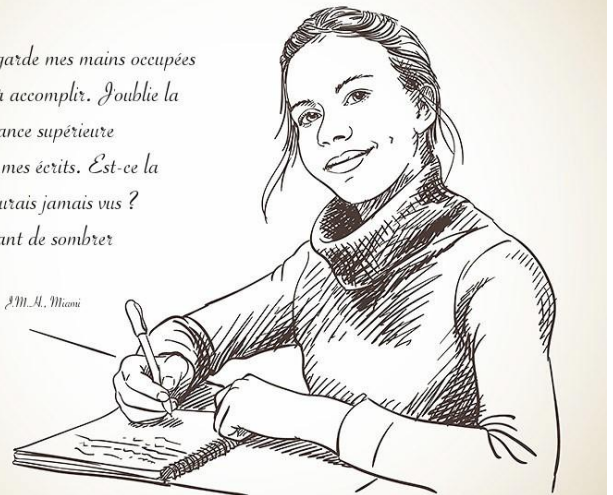 garde mes mains occupées
à accomplir. J'oublie la
ance supérieure
mes écrits. Est-ce la
urais jamais vus ?
ant de sombrer
J.M.H., Miami